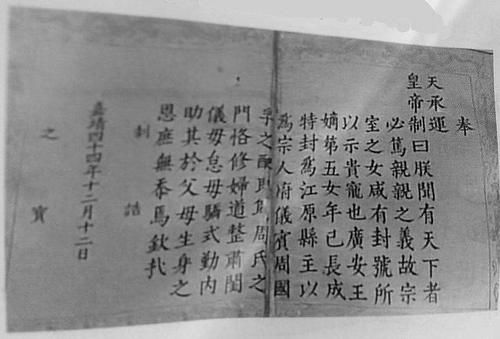 奉
天承運
皇帝制曰朕聞有天下者
必篤親親之義故宗
室之女咸有封號所
以示貴寵也廣安王
嫡第五女年已長成
特封爲江原縣主以
爲宗人府儀賓周國
孚之配周氏之
門恪修婦道整肅閨
儀毋怠毋驕式勤內
助其於父母生身之
恩庶無忝焉欽哉
制誥
嘉靖四十四年十二月十二日
之寶